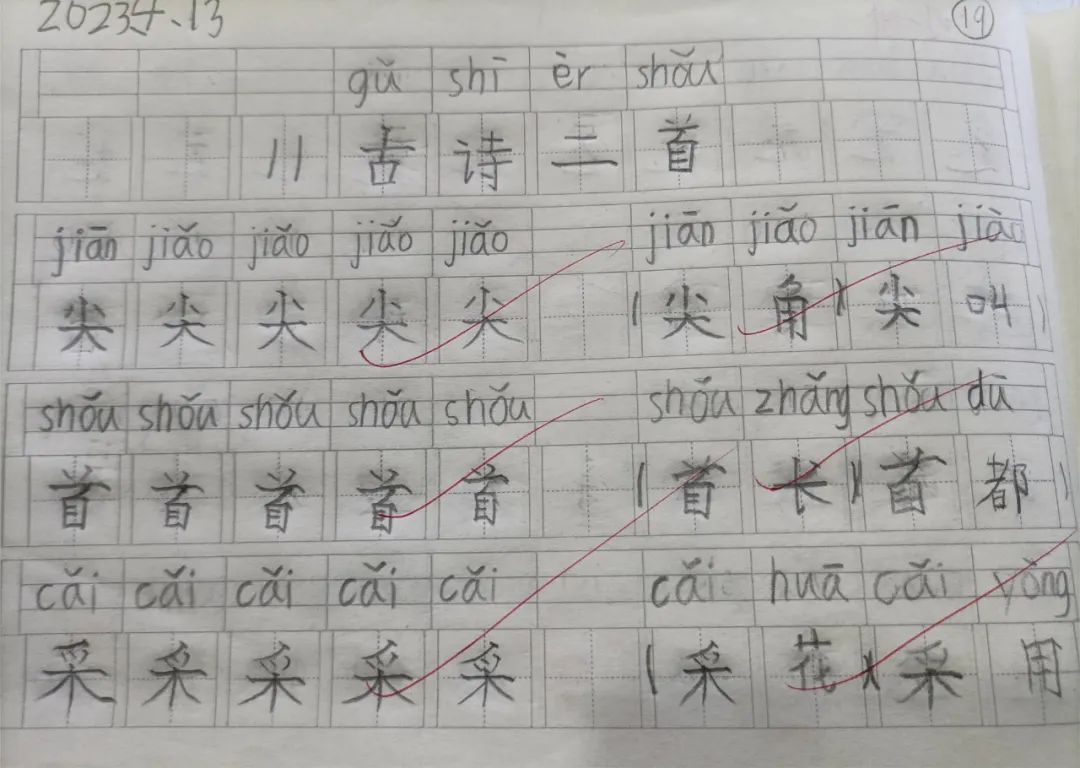 2023.5.13 19
gǔ shī èr shǒu
11 古诗二首
jiān jiǎo jiǎo jiǎo jiǎo jiān jiǎo jiān jiào
尖 尖 尖 尖 尖 (尖角)(尖叫)
shǒu shǒu shǒu shǒu shǒu shǒu zhǎng shǒu dū
首 首 首 首 首 (首长)(首都)
cǎi cǎi cǎi cǎi cǎi cǎi huā cǎi yòng
采 采 采 采 采 (采花)(采用